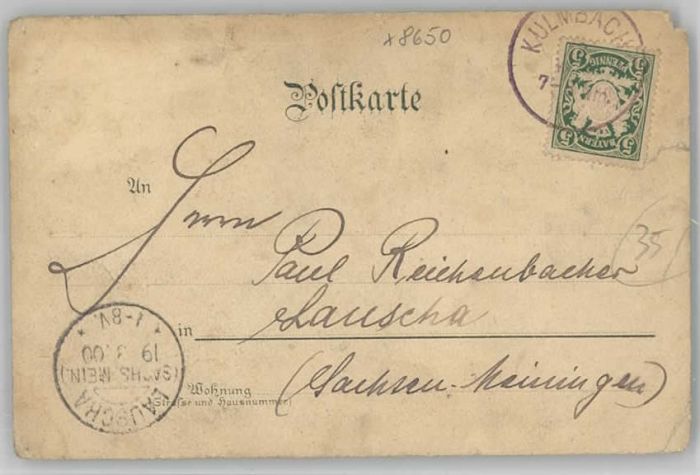 x8650
KULMBACH
7
5 PFENNIG 5
5 BAYERN 5
Postkarte
An
Herrn
Paul Reichenbacher
(35)
in Lauscha
(Sachsen-Meiningen)
Wohnung
(Strasse und Hausnummer)
LAUSCHA
(SACHS-MEIN.)
19 3 00
* 1-8V. *